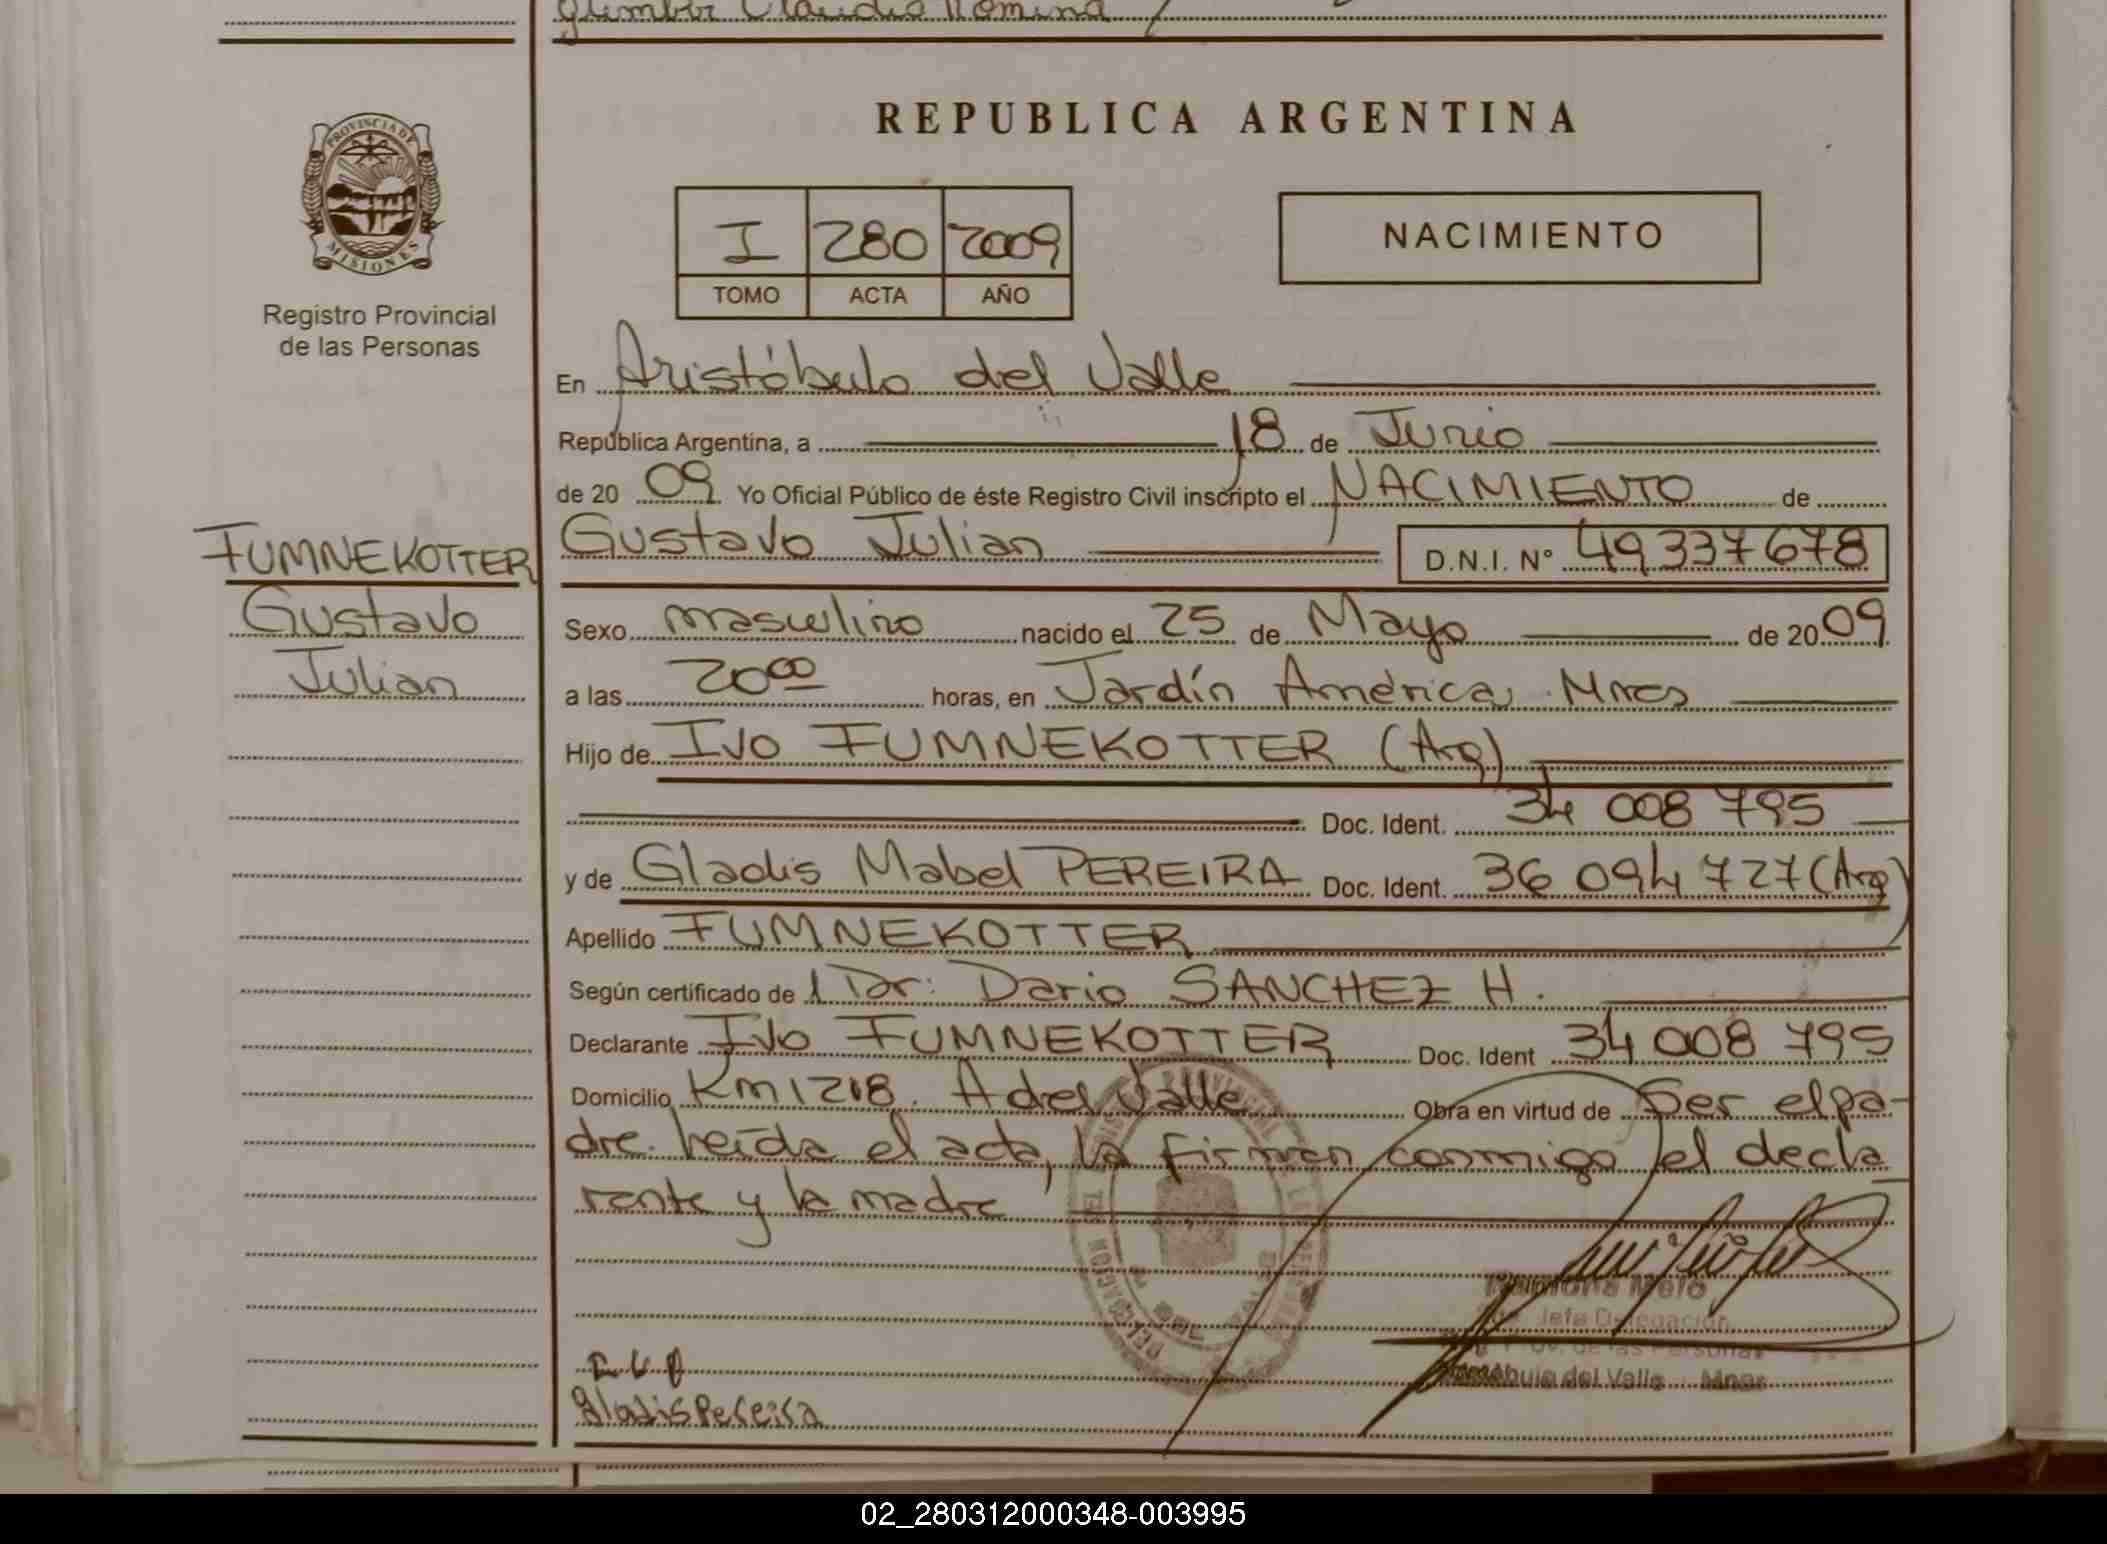 Claudia Romina
PROVINCIA DE
MISIONES
Registro Provincial
de las Personas
FUMNEKOTTER
Gustavo
Julian
REPUBLICA ARGENTINA
I 280 2009
TOMO ACTA AÑO
NACIMIENTO
En Aristóbulo del Valle
República Argentina, a 18 de Junio
de 20 09 Yo Oficial Público de éste Registro Civil inscripto el NACIMIENTO de
Gustavo Julian D.N.I. N° 49337678
Sexo masculino nacido el 25 de Mayo de 20 09
a las 20 00 horas, en Jardín América, Mnes
Hijo de Ivo FUMNEKOTTER (Arg)
Doc. Ident. 34 008 795
y de Gladis Mabel PEREIRA Doc. Ident. 36 094 727 (Arg)
Apellido FUMNEKOTTER
Según certificado de l Dr: Dario SANCHEZ H.
Declarante Ivo FUMNEKOTTER Doc. Ident 34 008 795
Domicilio Km 1218. A del Valle Obra en virtud de Ser el pa-
dre. Leída el acta, la firman conmigo el decla
rante y la madre
Ramona Melo
Jefa Delegación
Prov. de las Personas
Aristóbulo del Valle Mnes
Gladis Pereira
02_280312000348-003995